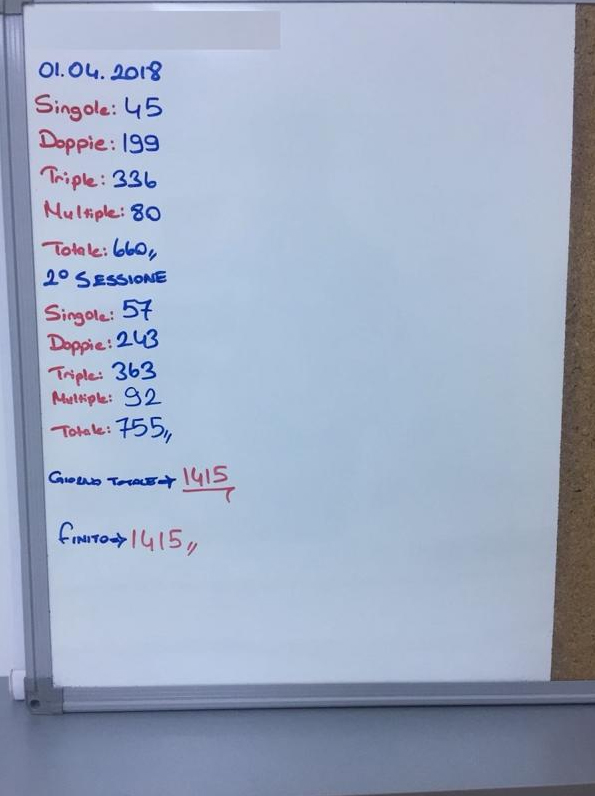 01.04.2018
Singole: 45
Doppie: 199
Triple: 336
Multiple: 80
Totale: 660,,
2° SESSIONE
Singole: 57
Doppie: 243
Triple: 363
Multiple: 92
Totale: 755,,
GIORNO TOTALE→ 1415
FINITO→ 1415,,